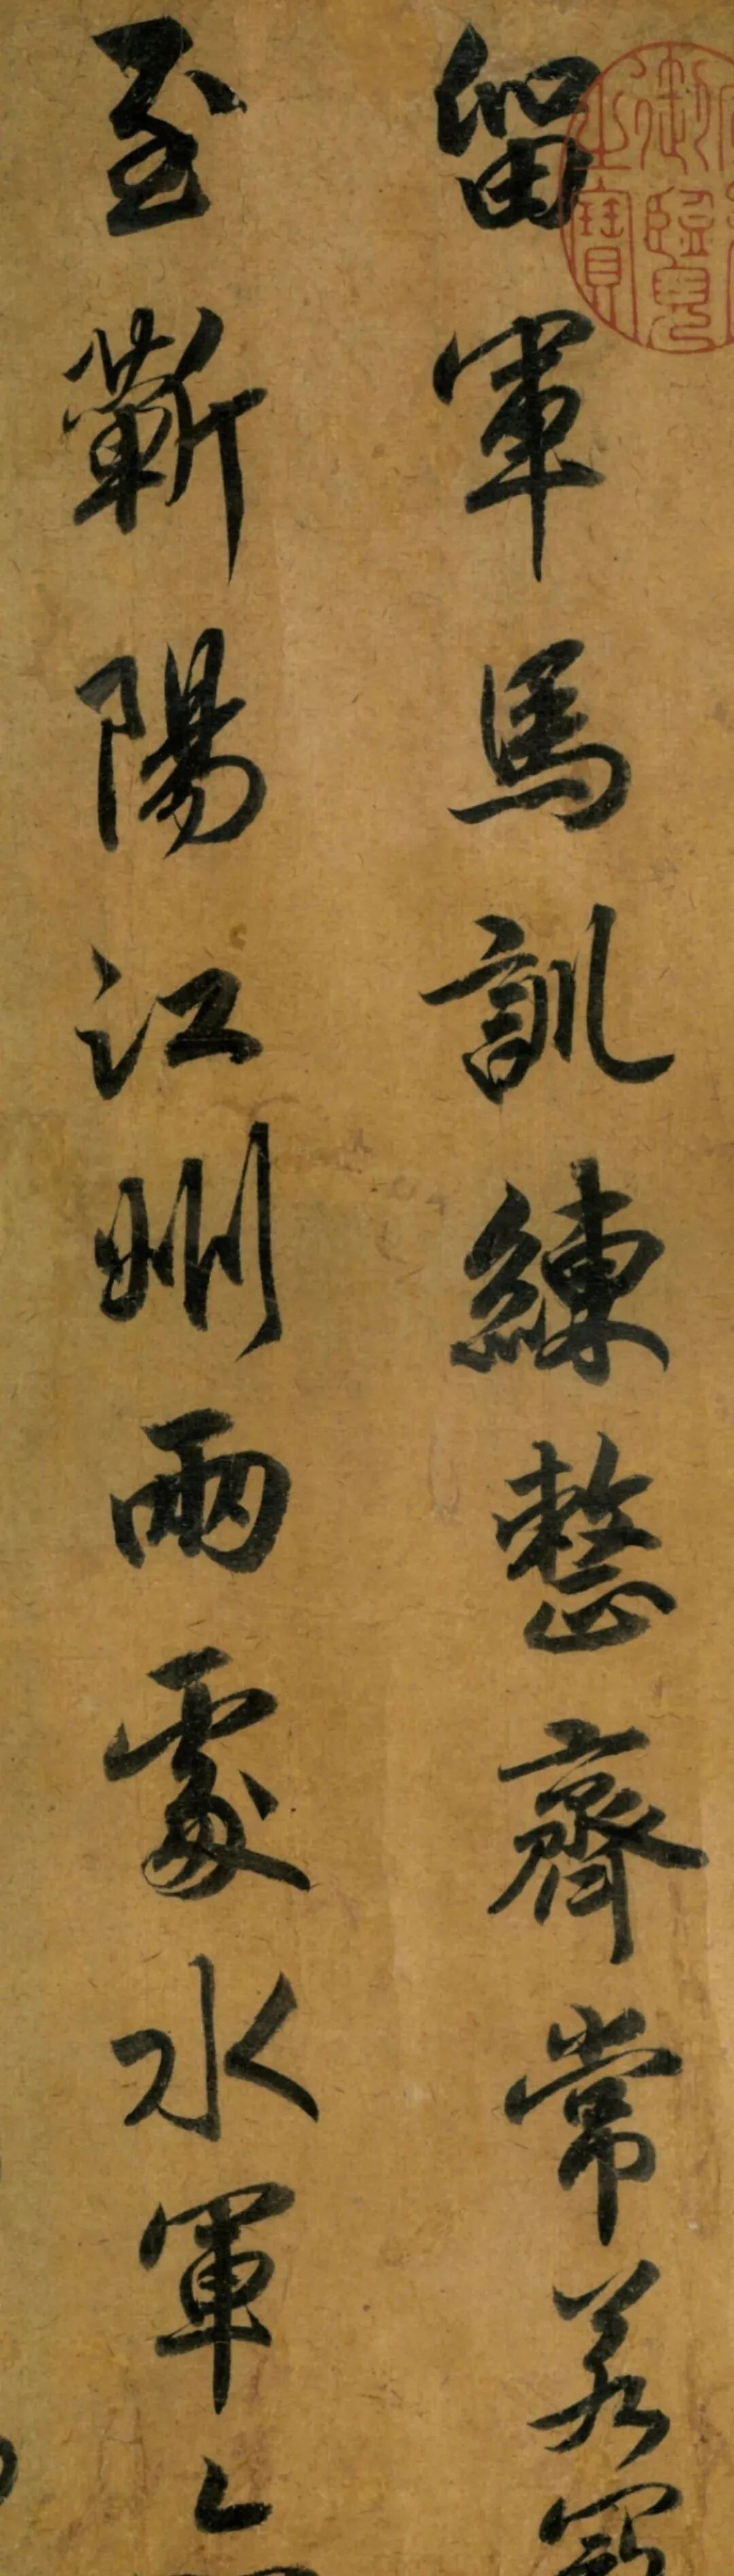 留軍馬訓練整齊常若寇
至蘄陽江州兩處水軍亦